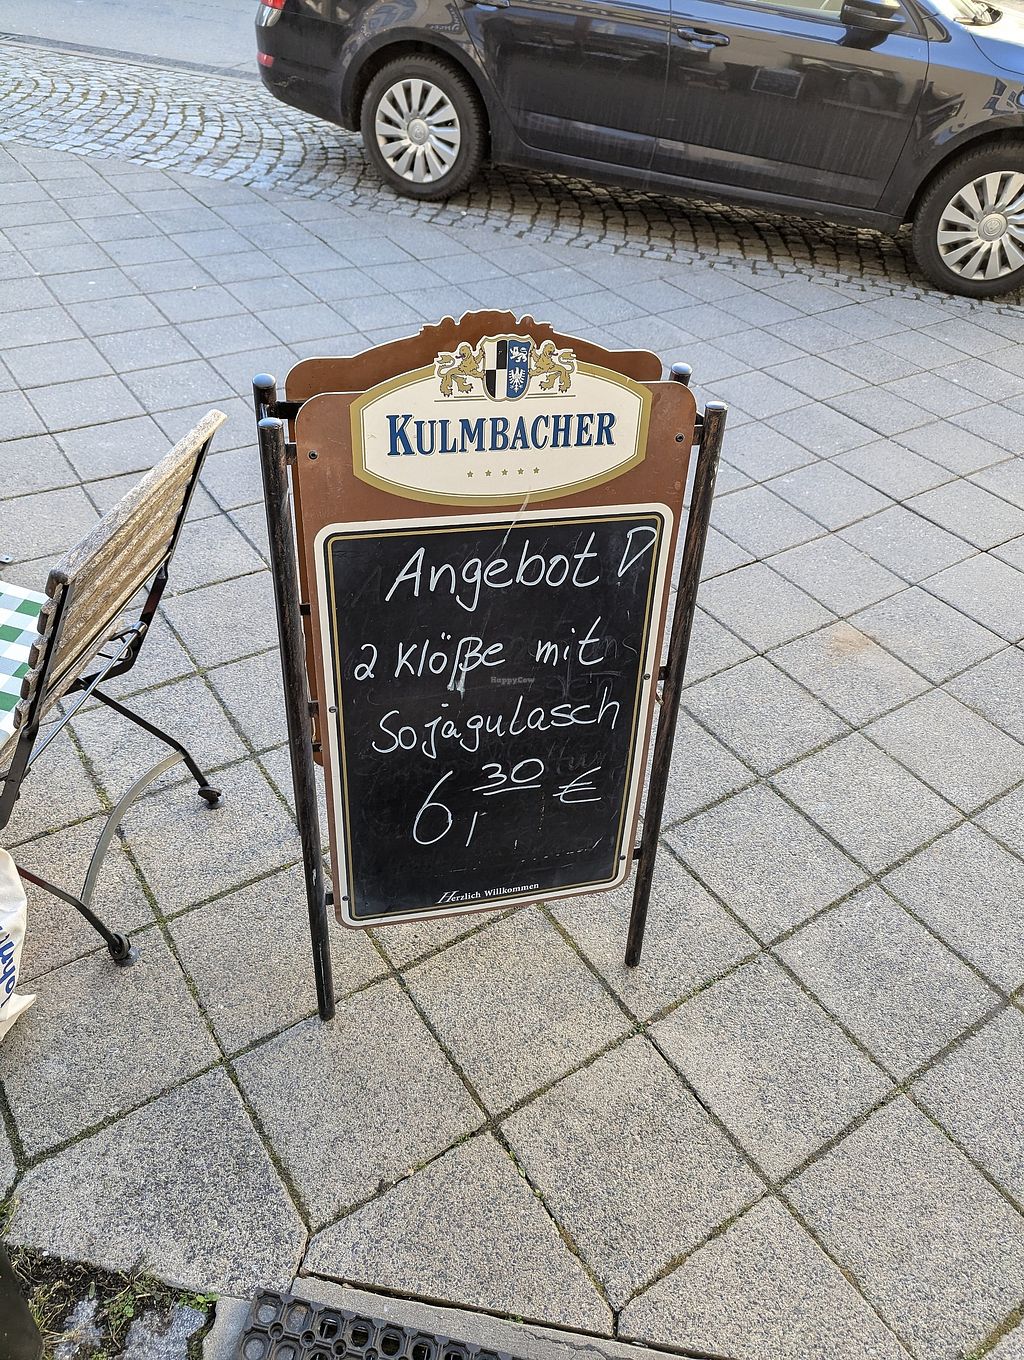 KULMBACHER
Angebot D
2 Klöße mit
Sojagulasch
6,30 €
Herzlich Willkommen
HappyCow